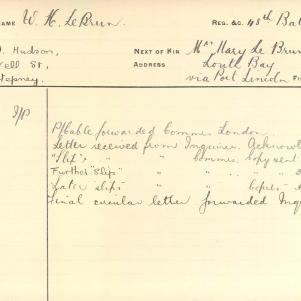 NAME W. H. Le Brun. REG. &C. 48th Bat
Hudson,
NEXT OF KIN Mrs Mary Le Brun
ell St,
ADDRESS Louth Bay
Stepney.
via Port Lincoln
I/P
P/Cable forwarded Commrs London.
Letter received from Inquirer. Acknowl
"Slip" " " Commrs. Copy sent
Further "Slip" " " "
Later "slips" " " Copies
Final circular letter forwarded Inq